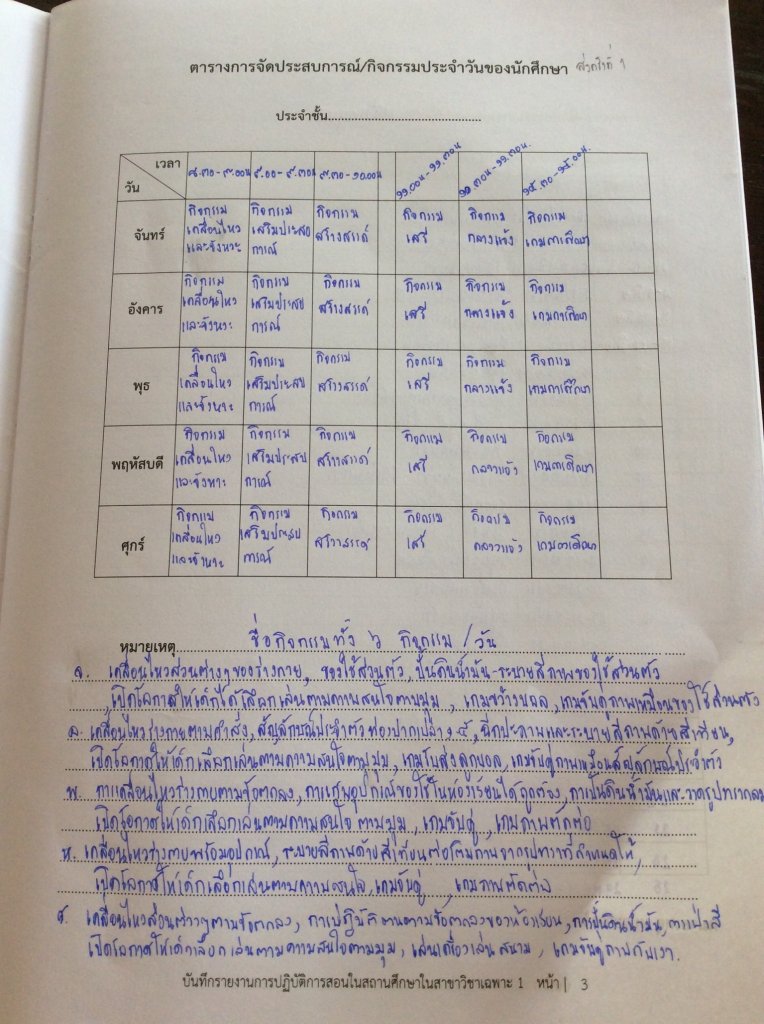 ตารางการจัดประสบการณ์/กิจกรรมประจำวันของนักศึกษา สัปดาห์ที่ 1
ประจำชั้น
เวลา
วัน
๘.๓๐-๙.๐๐น ๙.๐๐-๙.๓๐น ๙.๓๐-๑๐.๐๐น ๑๑.๐๐น-๑๑.๓๐น ๑๑.๓๐น-๑๑.๓๐น. ๑๔.๓๐-๑๕.๐๐น.
จันทร์ กิจกรรม กิจกรรม กิจกรรม กิจกรรม กิจกรรม กิจกรรม
เคลื่อนไหว เสริมประสบ สร้างสรรค์ เสรี กลางแจ้ง เกมการศึกษา
และจังหวะ การณ์
อังคาร กิจกรรม กิจกรรม กิจกรรม กิจกรรม กิจกรรม กิจกรรม
เคลื่อนไหว เสริมประสบ สร้างสรรค์ เสรี กลางแจ้ง เกมการศึกษา
และจังหวะ การณ์
พุธ กิจกรรม กิจกรรม กิจกรรม กิจกรรม กิจกรรม กิจกรรม
เคลื่อนไหว เสริมประสบ สร้างสรรค์ เสรี กลางแจ้ง เกมการศึกษา
และจังหวะ การณ์
พฤหัสบดี กิจกรรม กิจกรรม กิจกรรม กิจกรรม กิจกรรม กิจกรรม
เคลื่อนไหว เสริมประสบ สร้างสรรค์ เสรี กลางแจ้ง เกมการศึกษา
และจังหวะ การณ์
ศุกร์ กิจกรรม กิจกรรม กิจกรรม กิจกรรม กิจกรรม กิจกรรม
เคลื่อนไหว เสริมประสบ สร้างสรรค์ เสรี กลางแจ้ง เกมการศึกษา
และจังหวะ การณ์
หมายเหตุ ชื่อกิจกรรมทั้ง ๖ กิจกรรม /วัน
จ. เคลื่อนไหวส่วนต่างๆของร่างกาย, ของใช้ส่วนตัว, ปั้นดินน้ำมัน-ระบายสีภาพของใช้ส่วนตัว
,เปิดโอกาสให้เด็กได้เลือกเล่นตามความสนใจตามมุม, เกมขว้างบอล, เกมจับคู่ภาพเหมือนของใช้ส่วนตัว
อ. เคลื่อนไหวร่างกายตามคำสั่ง, สัญลักษณ์ประจำตัว ฉีกปะภาพและระบายสีภาพด้วยสีเทียน,
เปิดโอกาสให้เด็กเลือกเล่นตามความสนใจตามมุม, เกมรับส่งลูกบอล, เกมจับคู่ภาพเหมือนสัญลักษณ์ประจำตัว
พ. การเคลื่อนไหวร่างกายตามข้อตกลง, อุปกรณ์ของใช้ในห้องเรียนได้ถูกต้อง, การปั้นดินน้ำมันและวาดรูป
เปิดโอกาสให้เด็กเลือกเล่นตามความสนใจ ตามมุม, เกมจับคู่, เกมภาพตัดต่อ
ห. เคลื่อนไหวร่างกายพร้อมอุปกรณ์, ระบายสีภาพด้วยสีเทียน ที่กำหนดให้,
เปิดโอกาสให้เด็กเลือกเล่นตามความสนใจ, เกมจับคู่, เกมภาพตัดต่อ
ศ. เคลื่อนไหวส่วนต่างๆตามข้อตกลง, การปฏิบัติตนตามข้อตกลงของห้องเรียน, การปั้นดินน้ำมัน, การเป่าสี
เปิดโอกาสให้เด็กเลือกเล่นตามความสนใจตามมุม, เล่นเครื่องเล่นสนาม, เกมจับคู่ภาพกับเงา.
บันทึกรายงานการปฏิบัติการสอนในสถานศึกษาในสาขาวิชาเฉพาะ 1 หน้า | 3